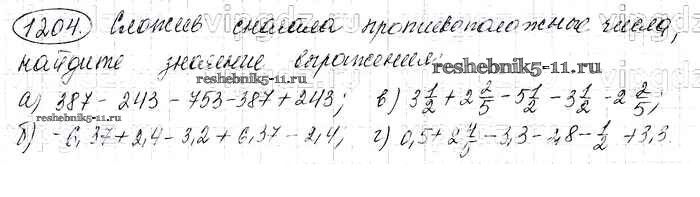 1204. Сложив сначала противоположные числа,
найдите значение выражения:
reshebnik5-11.ru
reshebnik5-11.ru
а) 387 - 243 - 753 - 387 + 243; в) 3 1/2 + 2 2/5 - 5 1/2 - 3 1/2 - 2 2/5;
reshebnik5-11.ru
б) -6,37 + 2,4 - 3,2 + 6,37 - 2,4; г) 0,5 + 2 4/5 - 3,3 - 2,8 - 1/2 + 3,3.
reshebnik5-11.ru